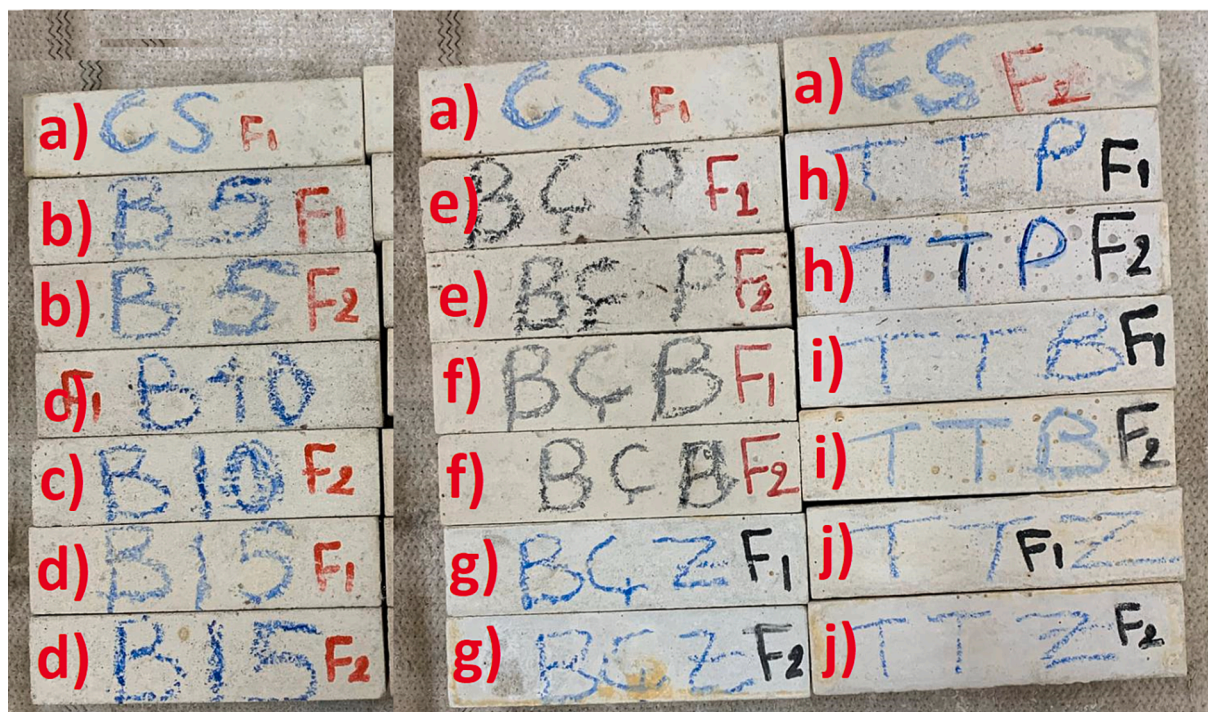 a) CS F1
b) B 5 F1
b) B 5 F2
d) F1 B10
c) B10 F2
d) B15 F1
d) B15 F2
a) CS F1
e) BÇP F1
e) BÇP F2
f) BÇB F1
f) BÇB F2
g) BÇZ F1
g) BÇZ F2
a) CS F2
h) TTP F1
h) TTP F2
i) TTB F1
i) TTB F2
j) TT F1 Z
j) TTZ F2